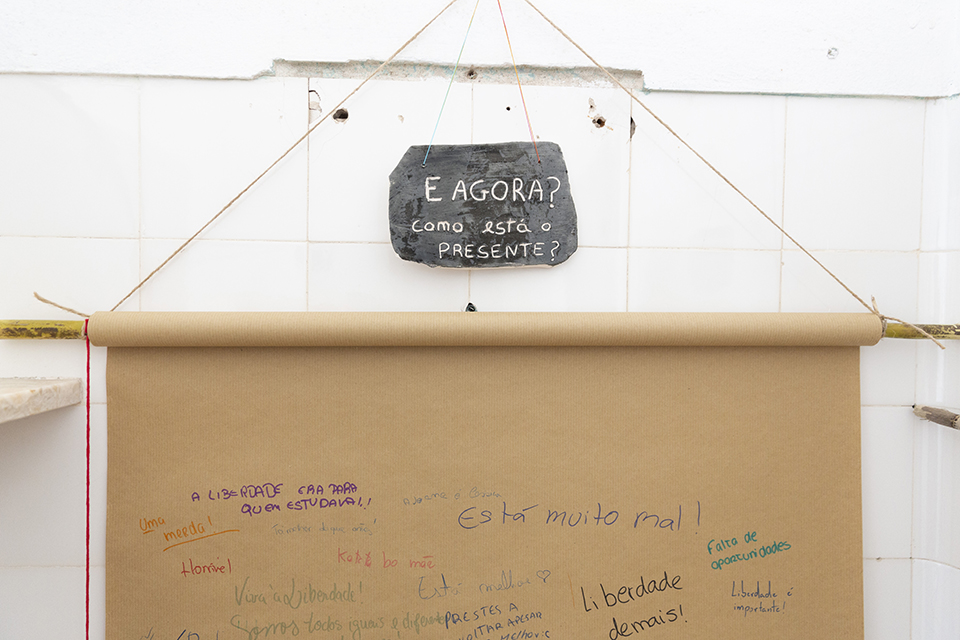 E AGORA?
como está o
PRESENTE?
A LIBERDADE ERA PARA
QUEM ESTUDAVA!!
Uma
merda!
Está muito mal!
Falta de
oportunidades
Horrível
bo mãe
Viva à Liberdade!
Está melhor ♡
Liberdade
demais!
Liberdade é
importante!
Somos todos iguais e diferentes
PRESTES A
VOLTAR APESAR